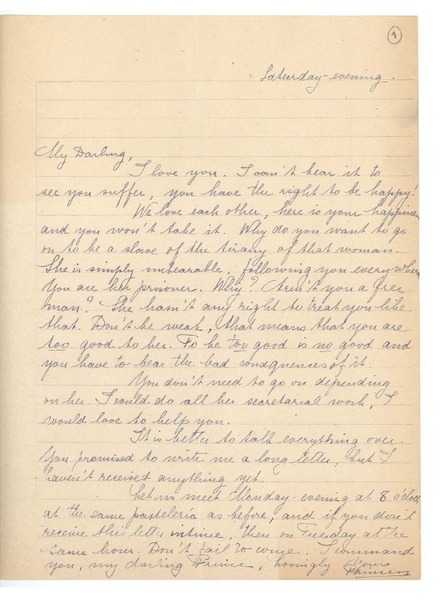 1
Saturday-evening.
My Darling,
I love you. I can't bear it to
see you suffer, you have the right to be happy!
We love each other, here is your happiness
and you won't take it. Why do you want to go
on to be a slave of the tirany of that woman.
She is simply unbearable, following you everywhere
You are her prisoner. Why? Aren't you a free
man? She hasn't any right to treat you like
that. Don't be weak, that means that you are
too good to her. To be too good is no good and
you have to bear the bad consequences of it.
You don't need to go on depending
on her. I would do all her secretarial work, I
would love to help you.
It is better to talk everything over.
You promised to write me a long letter, but I
haven't received anything yet.
Let us meet Monday-evening at 8 o'clock
at the same pasteleria as before, and if you don't
receive this letter intime, then on Tuesday at the
same hour. Don't fail to come. I command
you, my darling Prince, Yours
Princess